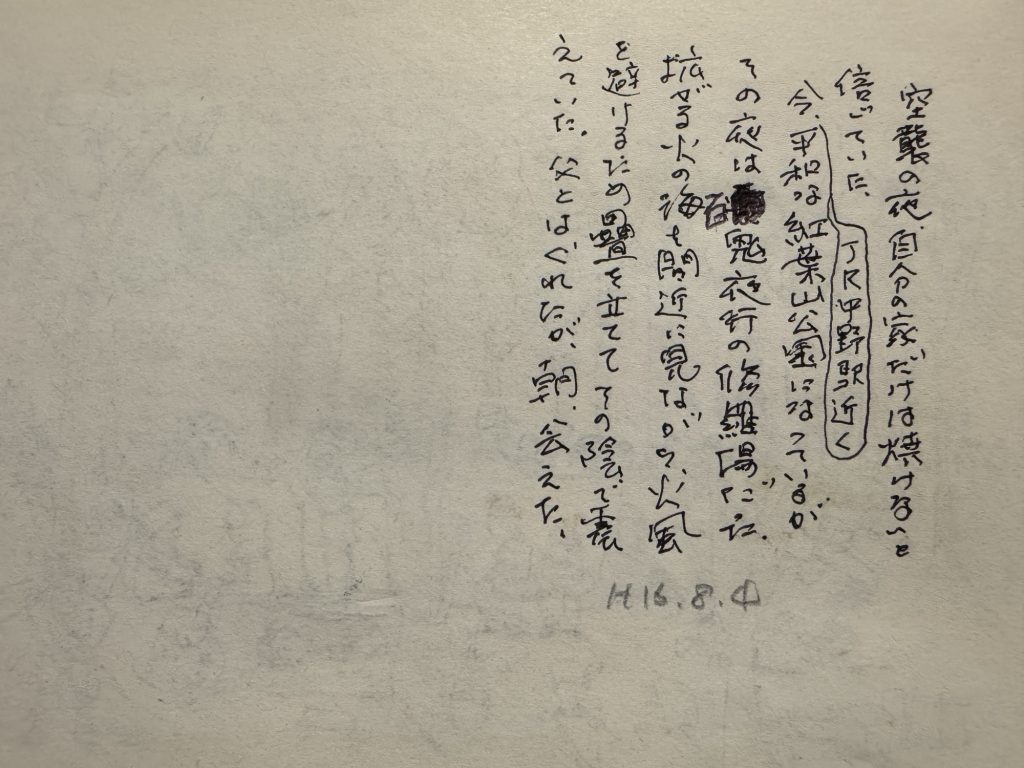 空襲の夜、自分の家だけは焼けないと
信じていた。
JR中野駅近く
今、平和な紅葉山公園になっているが
その夜は百鬼夜行の修羅場だった。
拡がる火の海を間近に見ながら、火風
を避けるため疊を立ててその陰で震
えていた。父とはぐれたが、朝、会えた。
H16.8.4